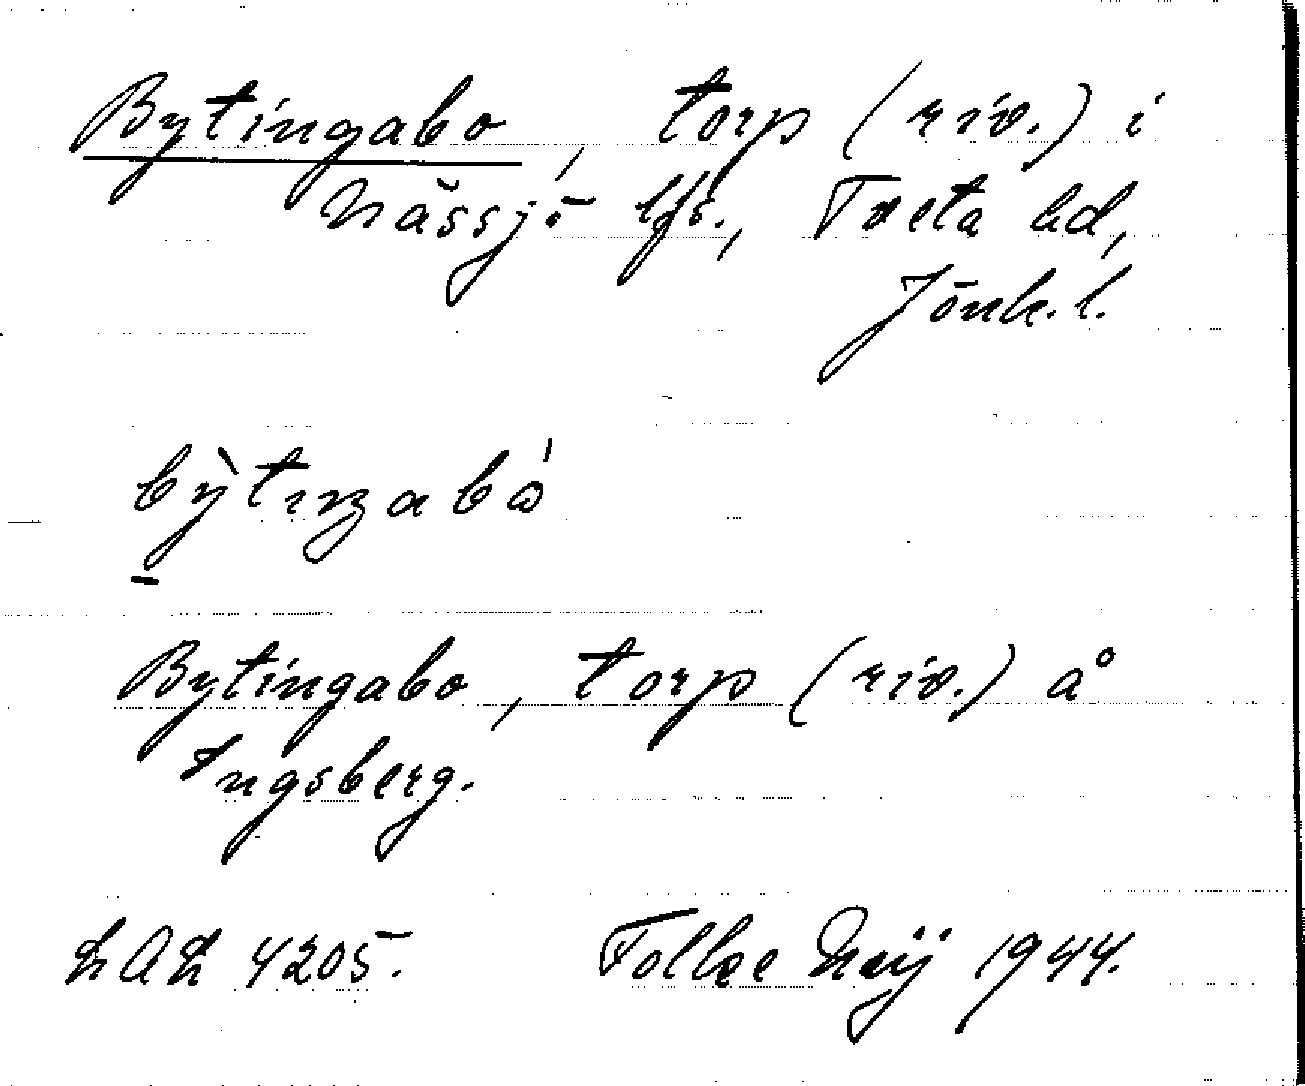 Bytingabo, torp (riv.) i
Nässjö lfs., Tveta hd,
Jönk. l.
bỳtıŋabó
Bytingabo, torp (riv.) å
Ingsberg.
LAL 4205. Tolle Meij 1944.